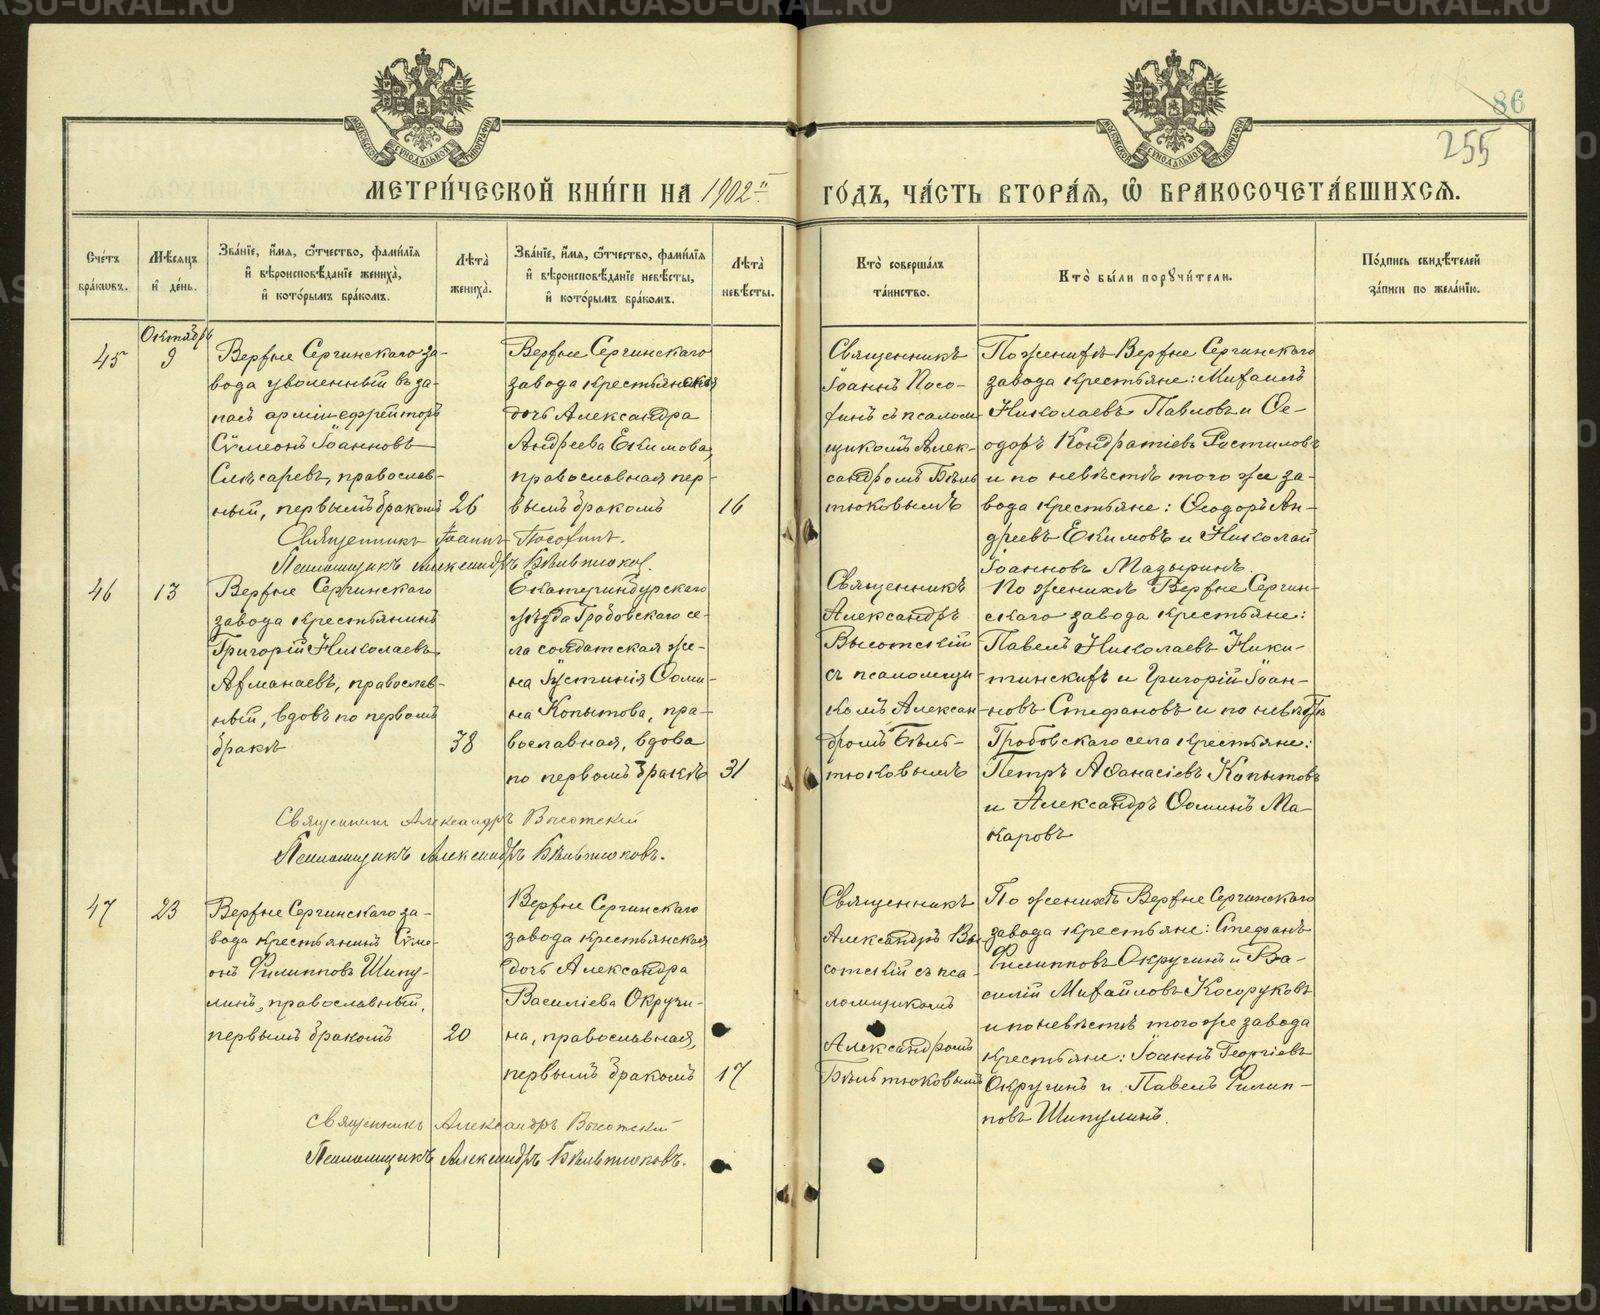 86
255
МЕТРИ́ЧЕСКОЙ КНИ́ГИ НА 1902й
ГО́ДЪ, ЧА́СТЬ ВТОРА́Я, Ѽ БРАКОСОЧЕТА́ВШИХСѦ.
Сче́тъ бра́кωвъ.
Мѣ́сяцъ и҆ де́нь.
Зва́нїе, и҆́мя, ѻ҆́тчество, фами́лїя и҆ вѣроисповѣ́данїе жениха̀, и҆ кото́рымъ бра́комъ.
Лѣта̀ жениха̀.
Зва́нїе, и҆́мя, ѻ҆́тчество, фами́лїя и҆ вѣроисповѣ́данїе невѣ́сты, и҆ кото́рымъ бра́комъ.
Лѣта̀ невѣ́сты.
Кто̀ соверша́лъ та́инство.
Кто̀ бы́ли порꙋчи́тели.
По́дпись свидѣ́телей за́писи по жела́нїю.
45
Октябрь
9
Верхне Сергинскаго за-
вода уволенный въ за-
пасъ арміи ефрейторъ
Сѵмеонъ Іоанновъ
Слѣсаревъ, православ-
ный, первымъ бракомъ
26
Верхне Сергинскаго
завода крестьянская
дочь Александра
Андреева Екимова,
православная пер-
вымъ бракомъ
16
Священникъ
Іоаннъ Посо-
хинъ съ псалом-
щикомъ Алек-
сандромъ Бѣль-
тюковымъ
По женихѣ Верхне Сергинскаго
завода крестьяне: Михаилъ
Николаевъ Павловъ и Ѳе-
одоръ Кондратіевъ Ростиловъ
и по невѣстѣ того же за-
вода крестьяне: Ѳеодоръ Ан-
дреевъ Екимовъ и Николай
Іоанновъ Мазыринъ.
Священникъ Іоаннъ Посохинъ.
Псаломщикъ Александръ Бѣльтюковъ.
46
13
Верхне Сергинскаго
завода крестьянинъ
Григорій Николаевъ
Ахманаевъ, православ-
ный, вдовъ по первомъ
бракѣ
38
Екатеринбургскаго
уѣзда Гробовскаго се-
ла солдатская же-
на Іустинія Ѳоми-
на Копытова, пра-
вославная, вдова
по первомъ бракѣ
31
Священникъ
Александръ
Высотскій
съ псаломщи-
комъ Алексан-
дромъ Бѣль-
тюковымъ
По женихѣ Верхне Сергин-
скаго завода крестьяне:
Павелъ Николаевъ Ники-
тинскихъ и Григорій Іоан-
новъ Стефановъ и по невѣстѣ
Гробовскаго села крестьяне:
Петръ Аѳанасіевъ Копытовъ
и Александръ Ѳоминъ Ма-
каровъ
Священникъ Александръ Высотскій
Псаломщикъ Александръ Бѣльтюковъ.
47
23
Верхне Сергинскаго за-
вода крестьянинъ Сѵме-
онъ Филипповъ Шипу-
линъ, православный,
первымъ бракомъ
20
Верхне Сергинскаго
завода крестьянская
дочь Александра
Василіева Окручи-
на, православная,
первымъ бракомъ
17
Священникъ
Александръ Вы-
сотскій съ пса-
ломщикомъ
Александромъ
Бѣльтюковымъ
По женихѣ Верхне Сергинскаго
завода крестьяне: Стефанъ
Филипповъ Окручинъ и Ва-
силій Михайловъ Косоруковъ
и по невѣстѣ того же завода
крестьяне: Іоаннъ Георгіевъ
Окручинъ и Павелъ Филип-
повъ Шипулинъ.
Священникъ Александръ Высотскій
Псаломщикъ Александръ Бѣльтюковъ.
METRIKI.GASU-URAL.RU